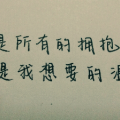 是所有的拥抱
是我想要的温